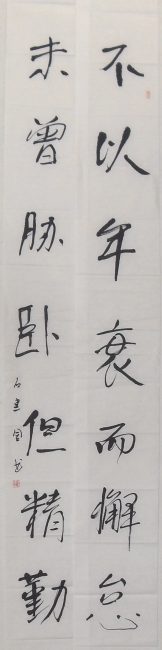 不以年衰而懈怠
未曾胁卧但精勤